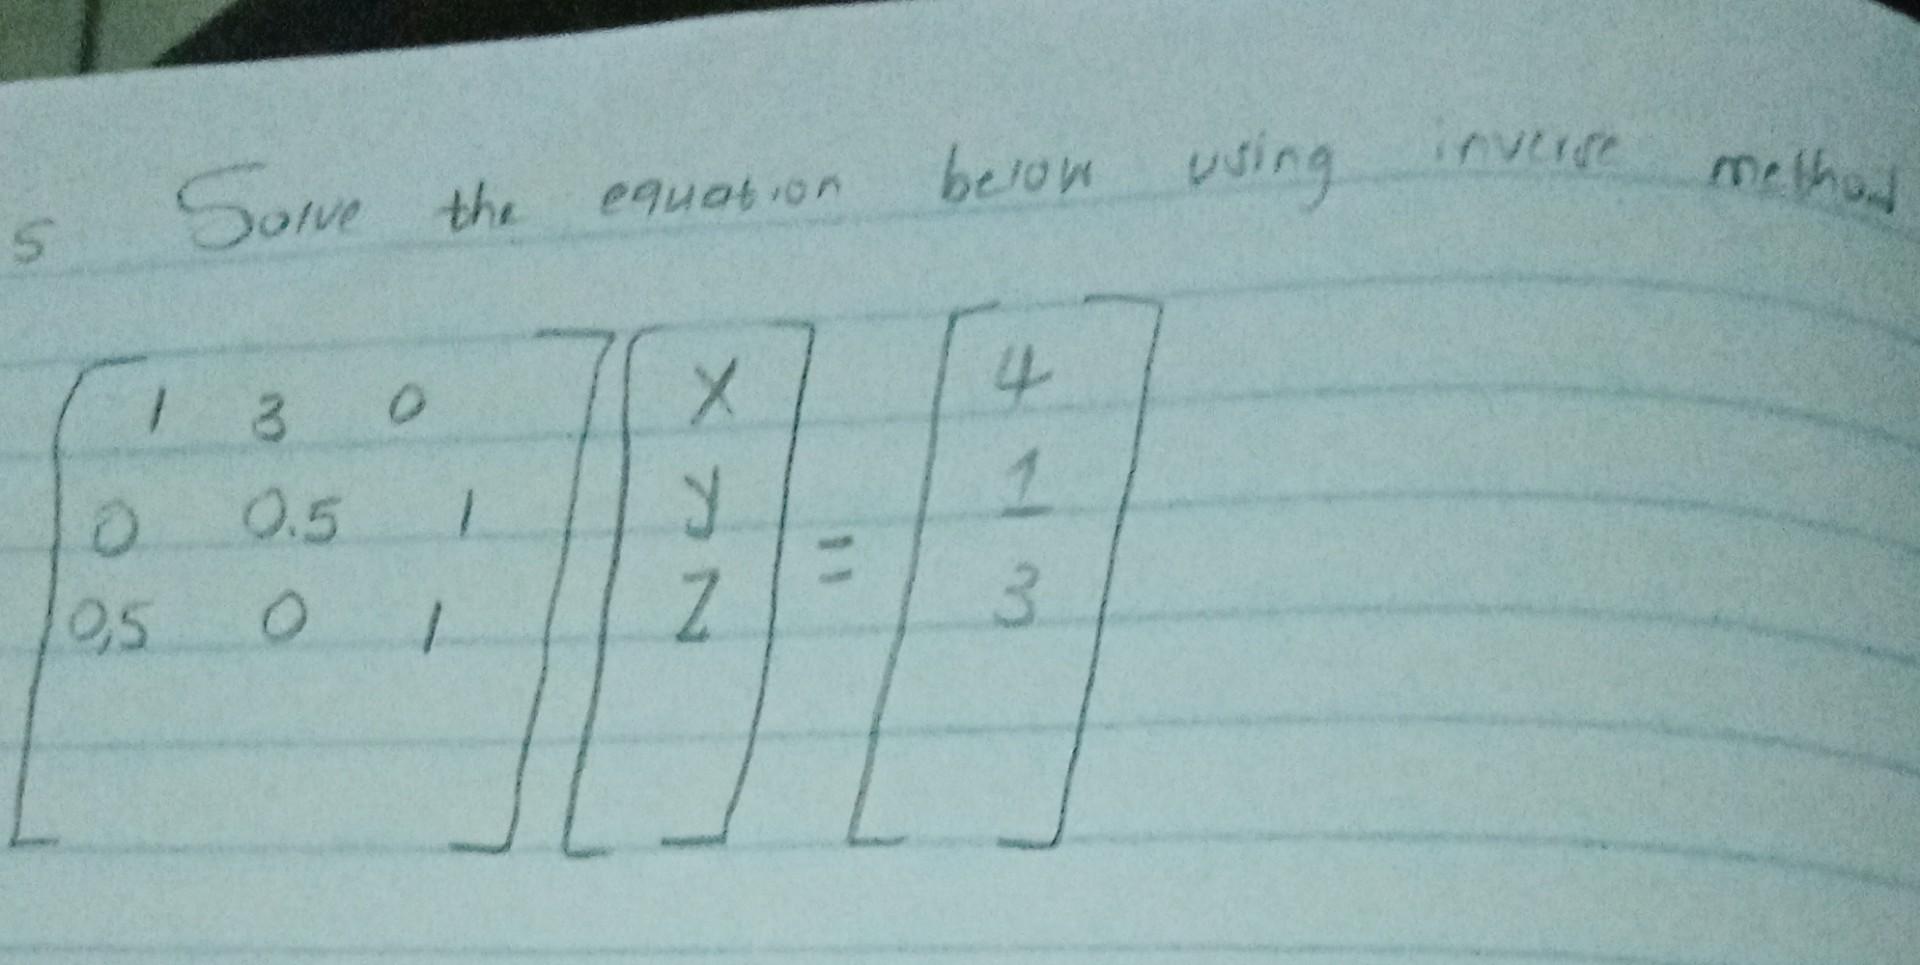 5 Solve the equation below using inverse method
1 3 0 x 4
0 0.5 1 y = 1
0,5 0 1 z 3